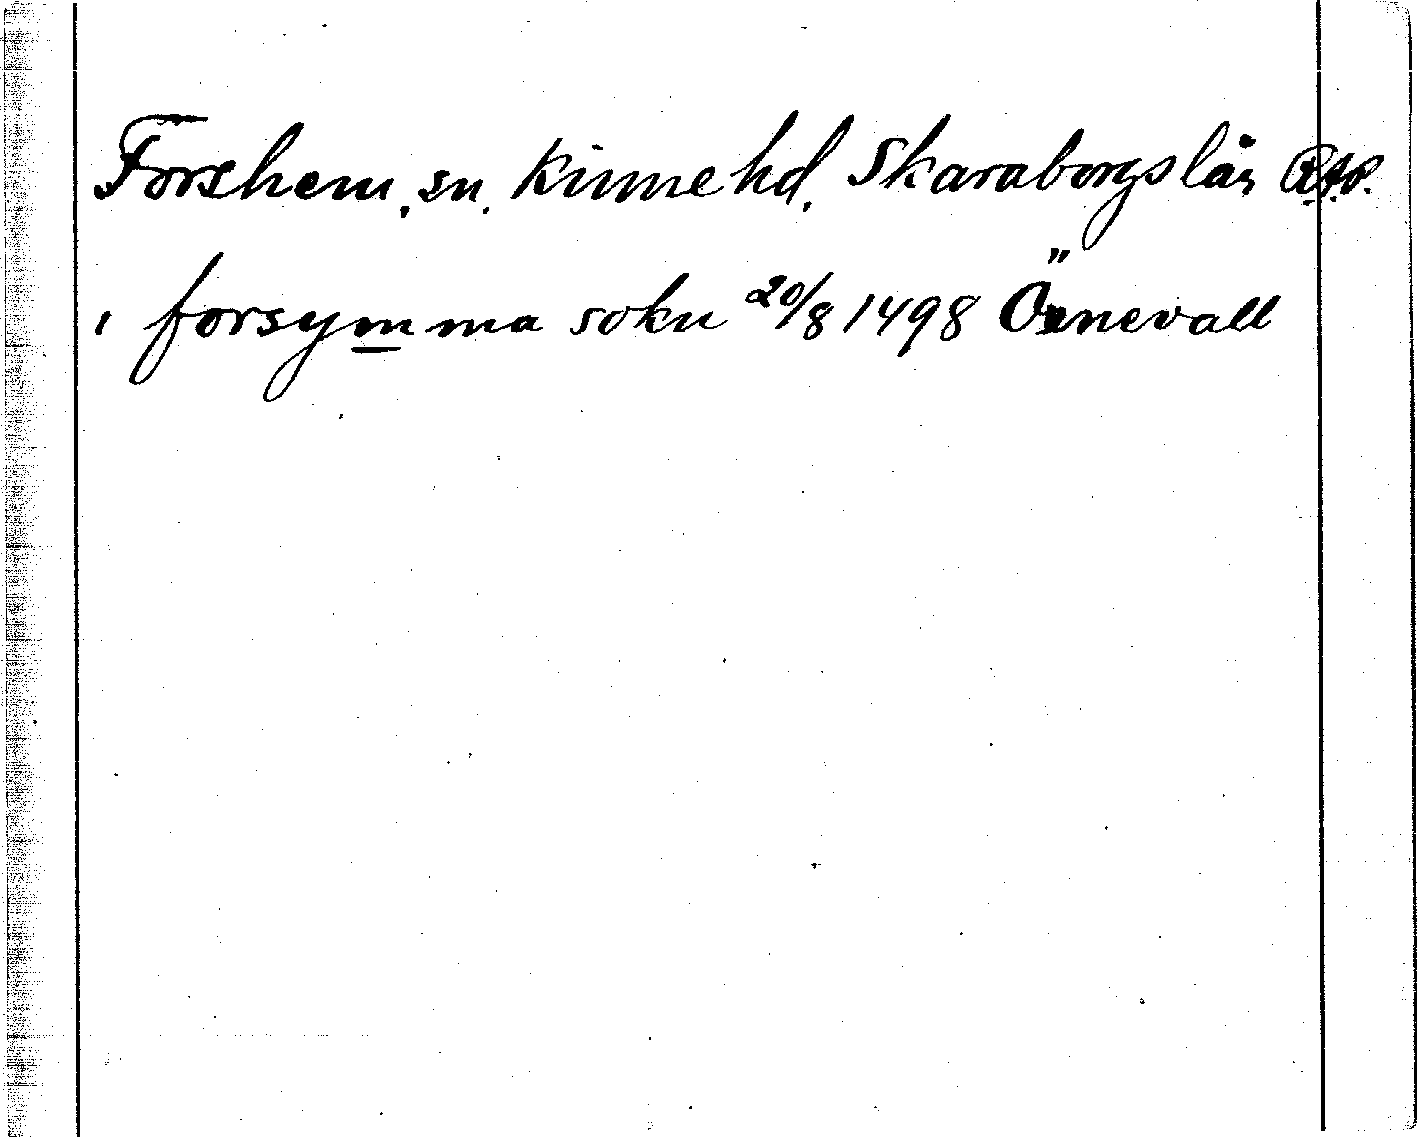 Forshem, sn. Kinne hd, Skaraborgs län RAp.
i forsymma sokn 20/8 1498 Örnevall